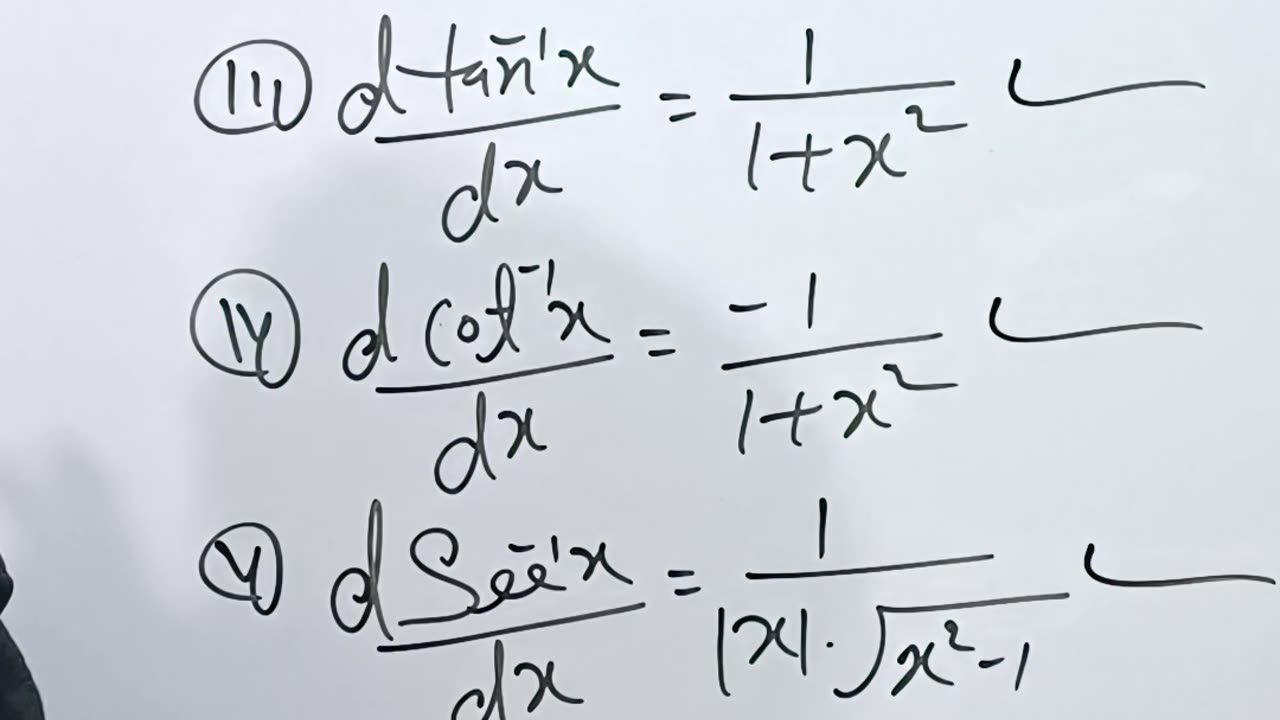 (III) d tan⁻¹x / dx = 1 / 1+x²
(IV) d Cot⁻¹x / dx = -1 / 1+x²
(V) d Sec⁻¹x / dx = 1 / |x|.√x²-1